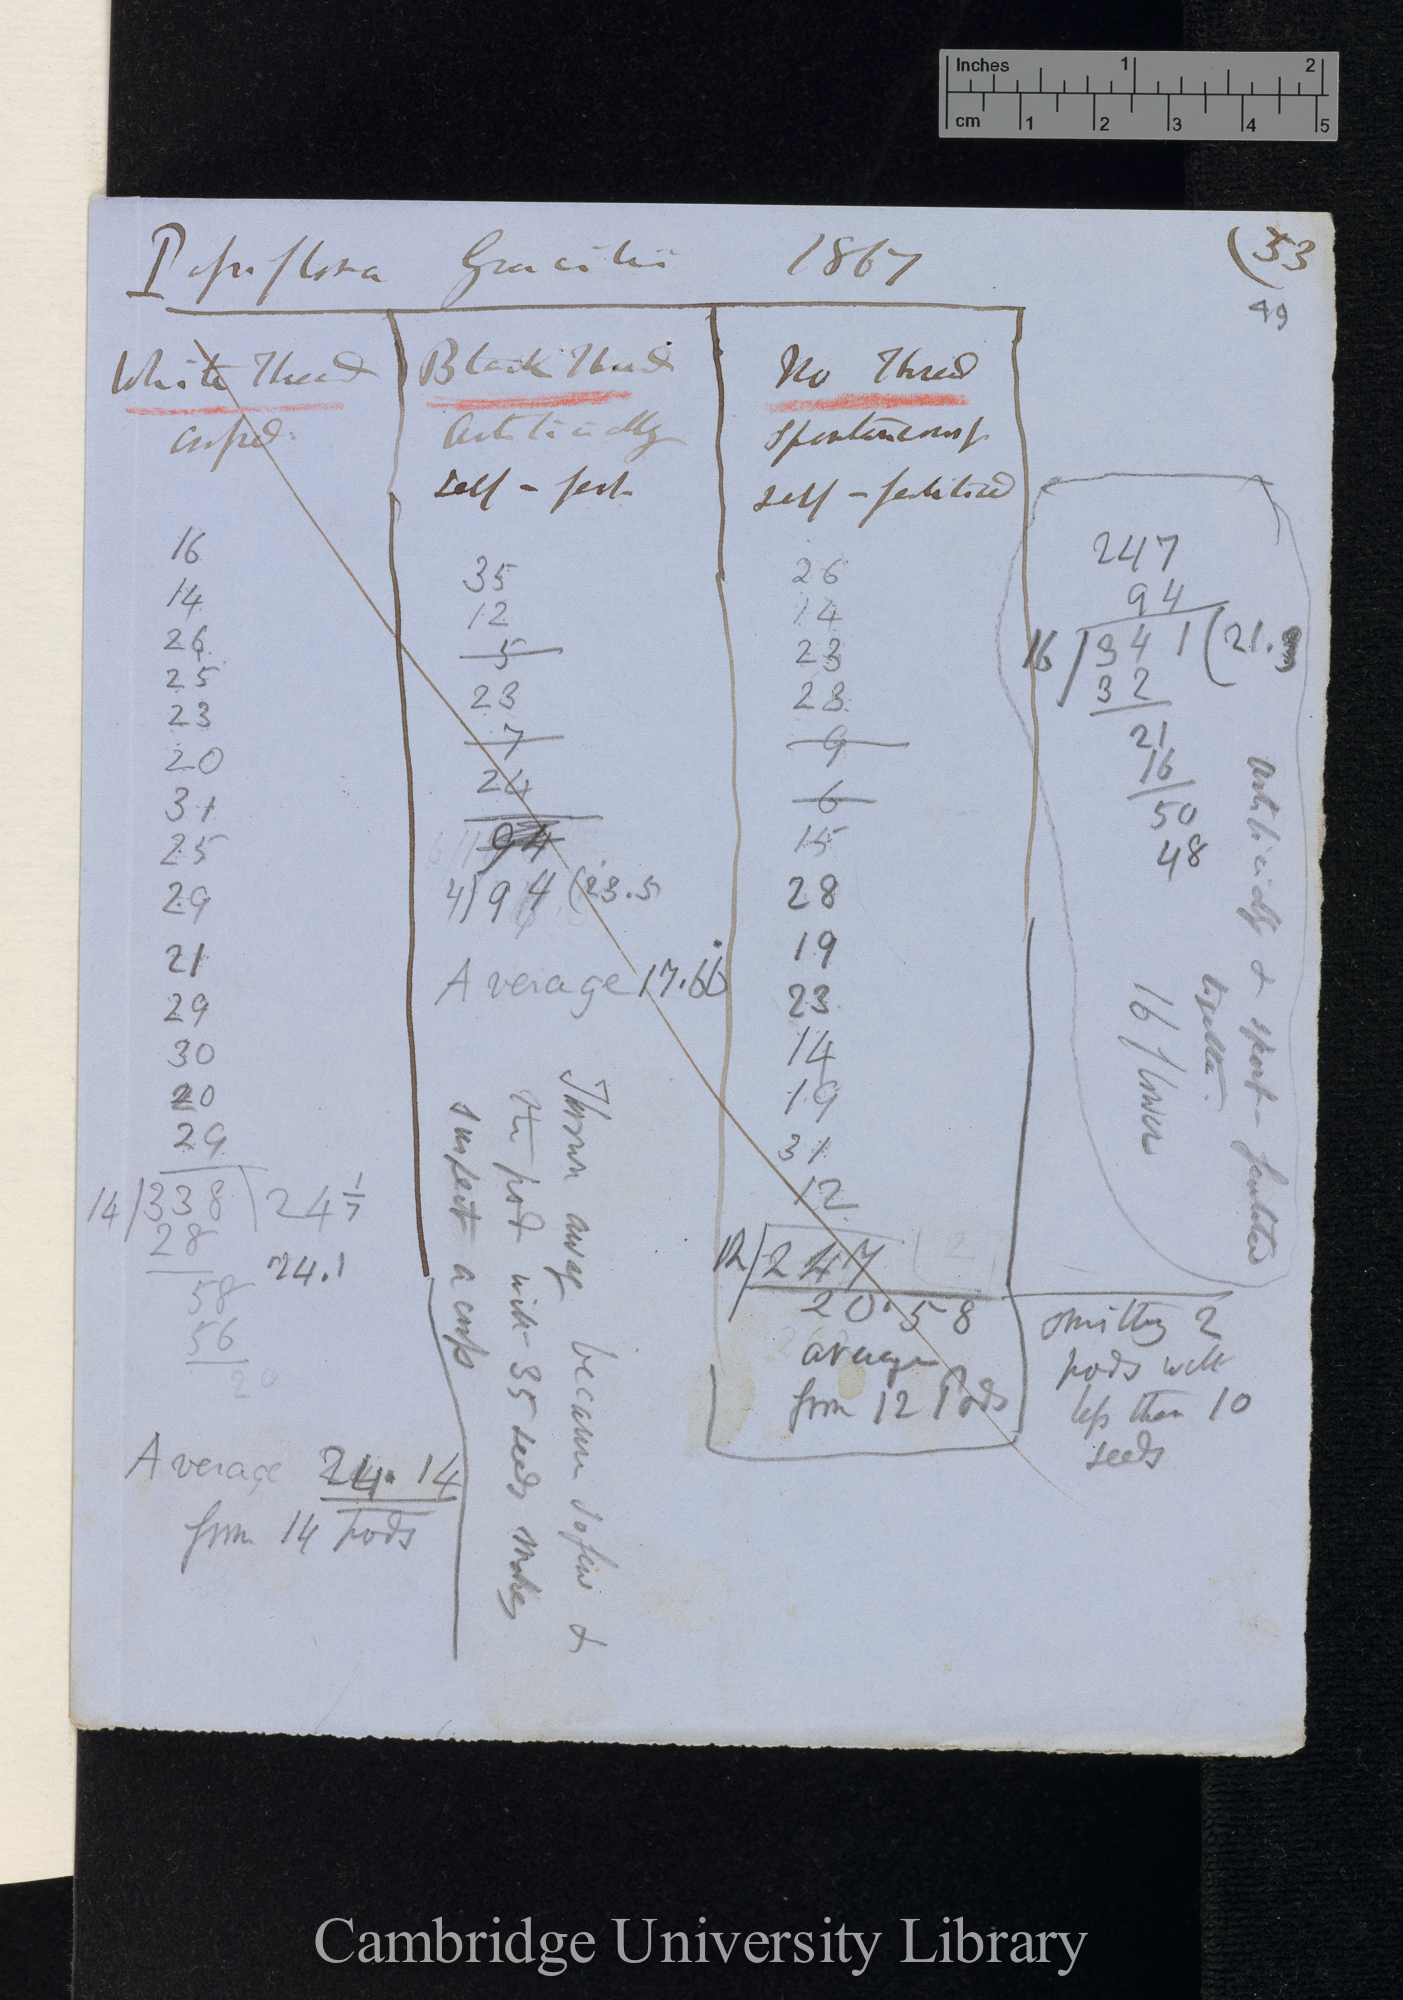 Inches 1 2
cm 1 2 3 4 5
Ipsiflora Gracilis 1867
(53
49
White Thread
crossed
16
14
26
25
23
20
31
25
29
21
29
30
20
29
14/338\24 1/7
28
24.1
58
56
20
Average 24.14
from 14 pods
Black Thread
Artificially
self-fert.
35
12
5
23
7
24
94
4)94(23.5
Average 17.66
Thrown away because so few &
the pod with 35 seeds makes
suspect a cross
No Thread
Spontaneously
self-fertilised
26
14
23
23
9
6
15
28
19
23
14
19
31
12
12/247
20.58
average
from 12 Pods
247
94
16/341(21.3
32
21
16
50
48
Artificially & spont- fertilised
together.
16 flowers
omitting 2
pods with
less than 10
seeds
Cambridge University Library